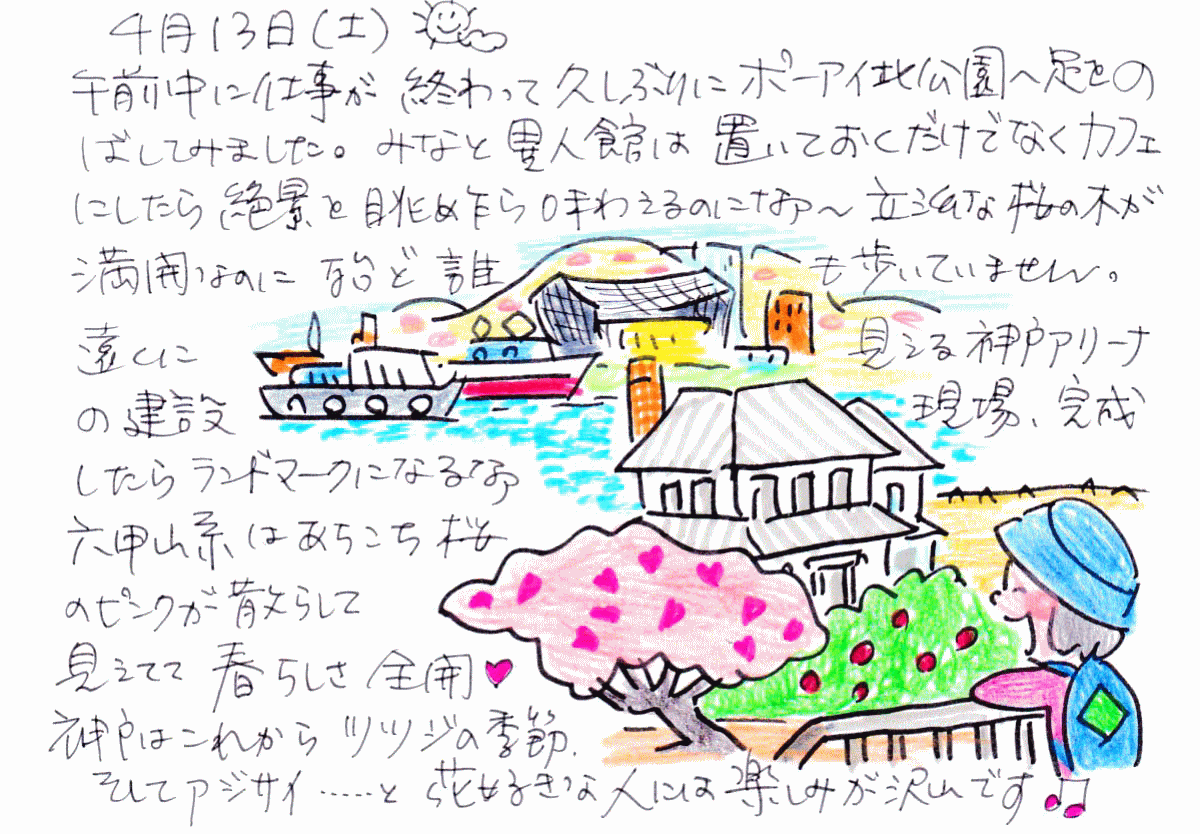 4月13日(土)
午前中に仕事が 終わって久しぶりにポーアイ北公園へ足をの
ばしてみました。みなと異人館は 置いておくだけでなくカフェ
にしたら 絶景を眺め乍ら味わえるのになあ〜 立派な桜の木が
満開なのに 殆ど誰も歩いていません。
遠くに見える神戸アリーナ
の建設現場、完成
したらランドマークになるなあ
六甲山系はあちこち桜
のピンクが散らして
見えてて 春らしさ 全開♥
神戸はこれから ツツジの季節.
そしてアジサイ……と 花好きな人には楽しみが沢山です♫